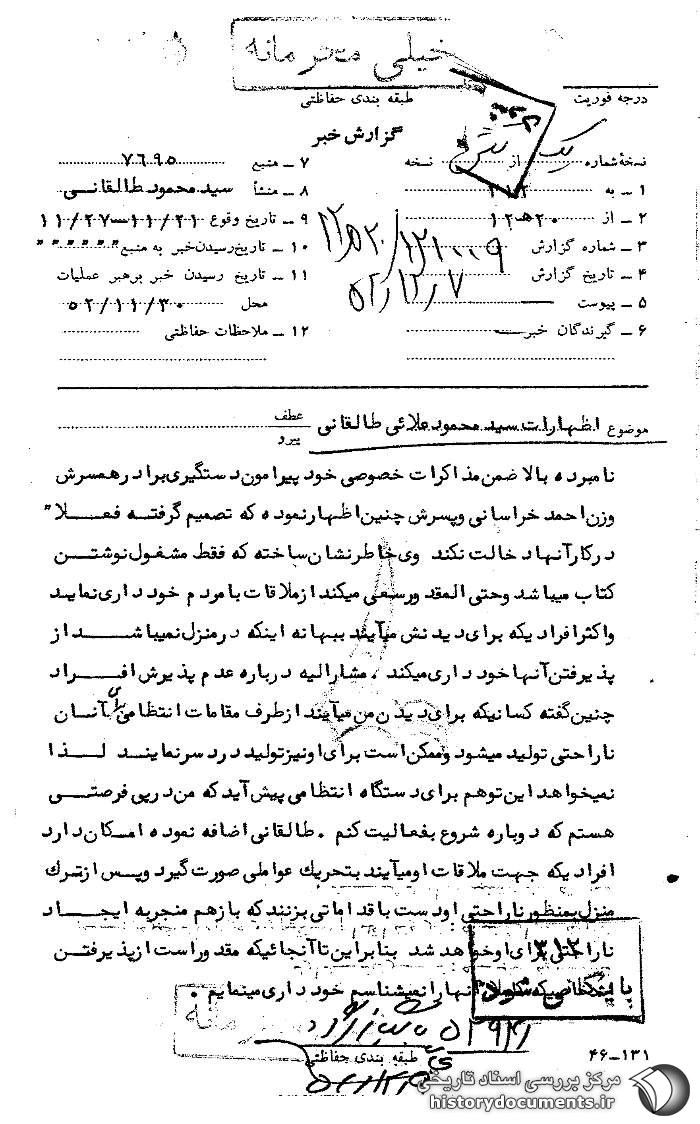 خیلی محرمانه
درجه فوریت
طبقه بندی حفاظتی
گزارش خبر
نسخهٔ شماره یک از نسخه
۱ ــ به ۳۱۲
۲ ــ از ۲۰ ه ۱۲
۳ ــ شماره گزارش
۴ ــ تاریخ گزارش ۵۲/۱۲/۷
۵ ــ پیوست
۶ ــ گیرندگان خبر
۷ ــ منبع ۷۶۹۵
۸ ــ منشأ سید محمود طالقانی
۹ ــ تاریخ وقوع ۱۱/۲۱ــ۱۱/۲۷
۱۰ ــ تاریخ رسیدن خبر به منبع " " " " " "
۱۱ ــ تاریخ رسیدن خبر برهبر عملیات
محل ۵۲/۱۱/۳۰
۱۲ ــ ملاحظات حفاظتی
موضوع اظهارات سید محمود علائی طالقانی
عطف
پیرو
نامبرده بالا ضمن مذاکرات خصوصی خود پیرامون دستگیری برادر همسرش
وزن احمد خراسانی وپسرش چنین اظهار نموده که تصمیم گرفته فعلا"
در کار آنها دخالت نکند وی خاطرنشان ساخته که فقط مشغول نوشتن
کتاب میباشد وحتی المقدور سعی میکند از ملاقات با مردم خود داری نماید
واکثر افرادیکه برای دیدنش میآیند ببهانه اینکه در منزل نمیباشد از
پذیرفتن آنها خود داری میکند . مشارالیه درباره عدم پذیرش افراد
چنین گفته کسانیکه برای دیدن من میآیند از طرف مقامات انتظامی برای آنان
ناراحتی تولید میشود وممکن است برای او نیز تولید درد سر نمایند لذا
نمیخواهد این توهم برای دستگاه انتظامی پیش آید که من در پی فرصتی
هستم که دوباره شروع بفعالیت کنم . طالقانی اضافه نموده امکان دارد
افرادیکه جهت ملاقات او میآیند بتحریک عواملی صورت گیرد وپس از ترک
منزل بمنظور ناراحتی او دست باقداماتی بزنند که بازهم منجر به ایجاد
ناراحتی برای او خواهد شد بنابراین تا آنجائیکه مقدور است از پذیرفتن
اشخاصیکه کاملا" آنها را نمیشناسم خود داری مینمایم .
۳۱۲
بایگانی شود
طبقه بندی حفاظتی
۱۳۱ــ۴۶
مرکز بررسی اسناد تاریخی
historydocuments.ir